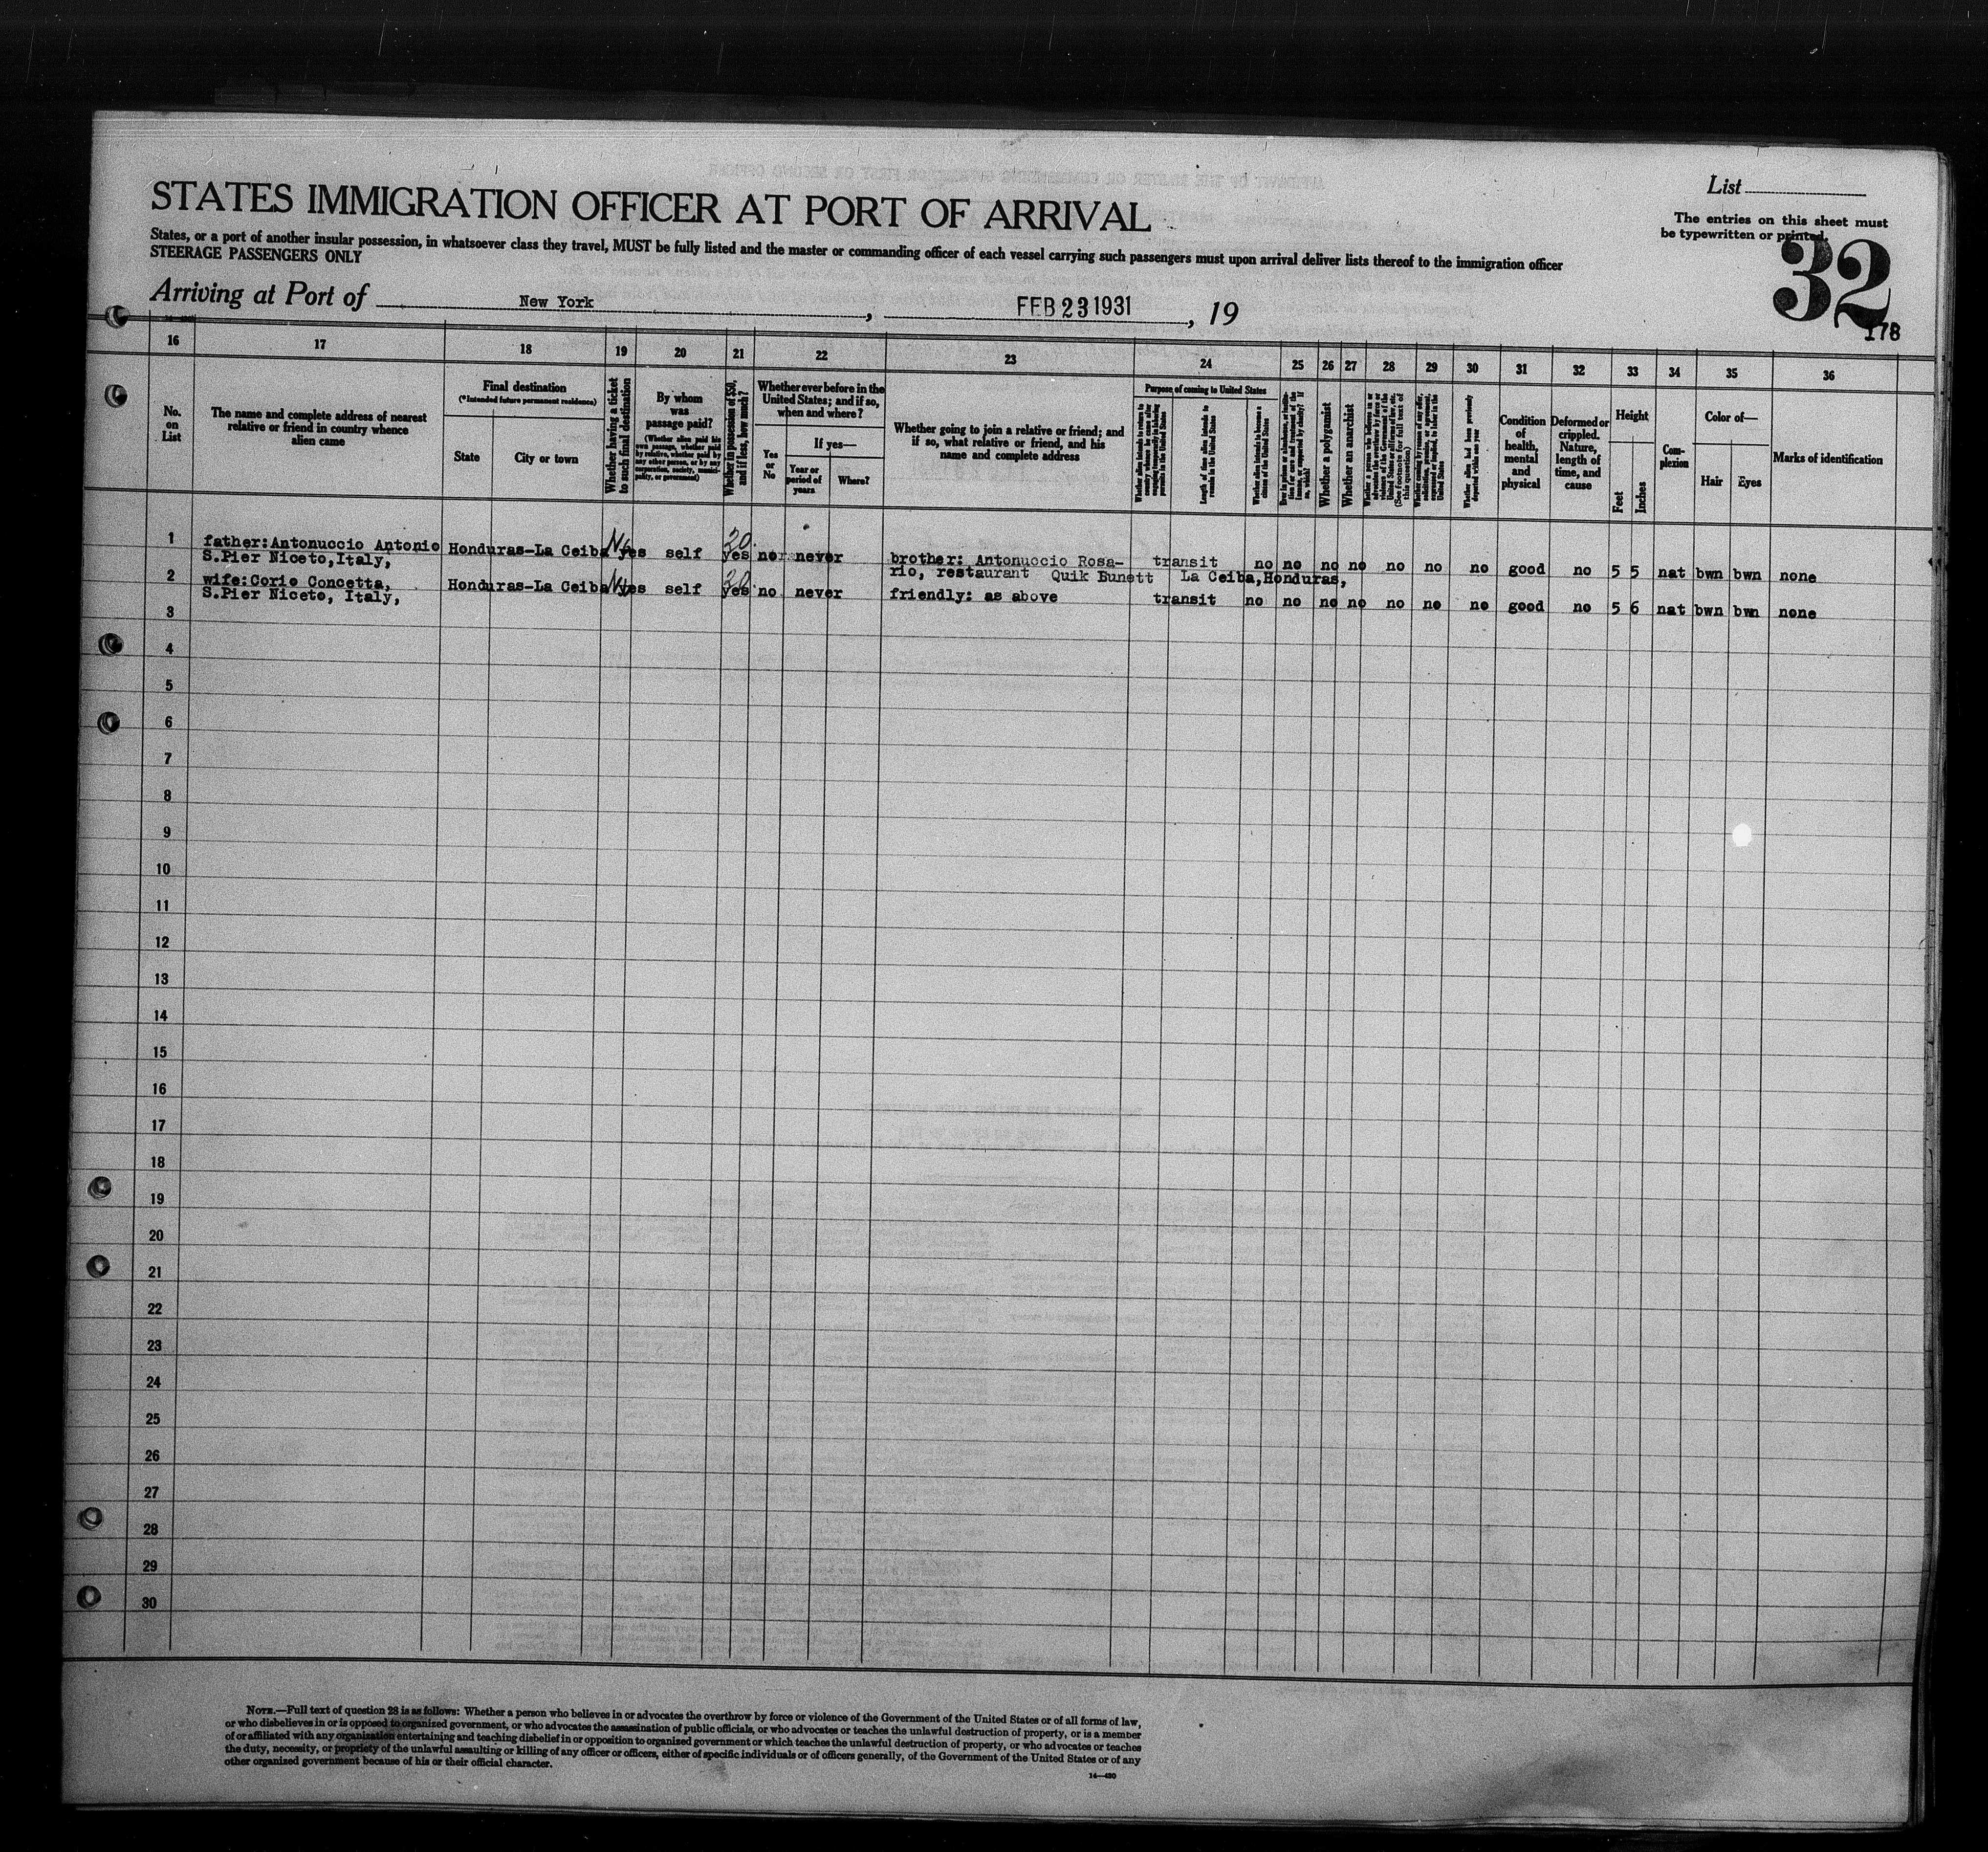 List
The entries on this sheet must
be typewritten or printed.
32
178
STATES IMMIGRATION OFFICER AT PORT OF ARRIVAL
States, or a port of another insular possession, in whatsoever class they travel, MUST be fully listed and the master or commanding officer of each vessel carrying such passengers must upon arrival deliver lists thereof to the immigration officer
STEERAGE PASSENGERS ONLY
Arriving at Port of New York, FEB 23 1931, 19
16 17 18 19 20 21 22 23 24 25 26 27 28 29 30 31 32 33 34 35 36
No.
on
List
The name and complete address of nearest
relative or friend in country whence
alien came
Final destination
(*Intended future permanent residence)
State
City or town
Whether having a ticket
to such final destination
By whom
was
passage paid?
(Whether alien paid his
own passage, whether paid
by relative, whether paid by
any other person, or by any
corporation, society, munici-
pality, or government)
Whether in possession of $50,
and if less, how much?
Whether ever before in the
United States; and if so,
when and where?
Yes
or
No
If yes—
Year or
period of
years
Where?
Whether going to join a relative or friend; and
if so, what relative or friend, and his
name and complete address
Purpose of coming to United States
Length of time alien intends to
remain in the United States
Whether alien intends to become a
citizen of the United States
Whether a polygamist
Whether an anarchist
(See footnote for full text of
this question)
Whether alien had been previously
deported within one year
Condition
of
health,
mental
and
physical
Deformed or
crippled.
Nature,
length of
time, and
cause
Height
Feet
Inches
Com-
plexion
Color of—
Hair
Eyes
Marks of identification
1 father:Antonuccio Antonio Honduras-La Ceiba No yes self 20. yes no never brother: Antonuccio Rosa- transit no no no no no no no good no 5 5 nat bwn bwn none
S.Pier Niceto,Italy, rio, restaurant Quik Bunett La Ceiba,Honduras,
2 wife:Corio Concetta, Honduras-La Ceiba No yes self 20. yes no never friendly: as above transit no no no no no no no good no 5 6 nat bwn bwn none
S.Pier Niceto, Italy,
3
4
5
6
7
8
9
10
11
12
13
14
15
16
17
18
19
20
21
22
23
24
25
26
27
28
29
30
NOTE.—Full text of question 28 is as follows: Whether a person who believes in or advocates the overthrow by force or violence of the Government of the United States or of all forms of law,
or who disbelieves in or is opposed to organized government, or who advocates the assassination of public officials, or who advocates or teaches the unlawful destruction of property, or is a member
of or affiliated with any organization entertaining and teaching disbelief in or opposition to organized government or which teaches the unlawful destruction of property, or who advocates or teaches
the duty, necessity, or propriety of the unlawful assaulting or killing of any officer or officers, either of specific individuals or of officers generally, of the Government of the United States or of any
other organized government because of his or their official character.
14—430